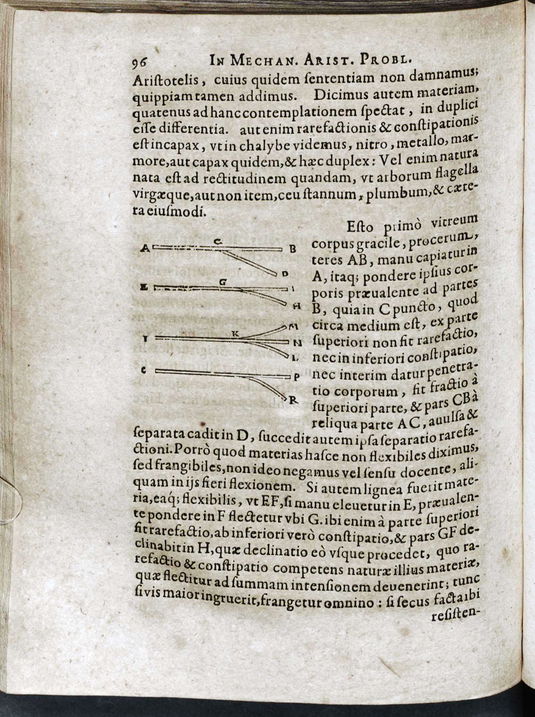 96 IN MECHAN. ARIST. PROBL.
Aristotelis, cuius quidem sententiam non damnamus;
quippiam tamen addimus. Dicimus autem materiam,
quatenus ad hanc contemplationem spectat, in duplici
esse differentia. aut enim rarefactionis & constipationis
est incapax, vt in chalybe videmus, nitro, metallo, mar-
more, aut capax quidem, & hæc duplex: Vel enim natura
nata est ad rectitudinem quandam, vt arborum flagella
virgæque, aut non item, ceu stannum, plumbum, & cæte-
ra eiusmodi.
Esto primò vitreum
corpus gracile, procerum,
teres AB, manu capiatur in
A, itaq; pondere ipsius cor-
poris præualente ad partes
B, quia in C puncto, quod
circa medium est, ex parte
superiori non fit rarefactio,
nec in inferiori constipatio,
nec interim datur penetra-
tio corporum, fit fractio à
superiori parte, & pars CB à
reliqua parte AC, auulsa &
separata cadit in D, succedit autem ipsa separatio rarefa-
ctioni. Porrò quod materias hasce non flexibiles diximus,
sed frangibiles, non ideo negamus vel sensu docente, ali-
quam in ijs fieri flexionem. Si autem lignea fuerit mate-
ria, eaq; flexibilis, vt EF, si manu eleuetur in E, præualen-
te pondere in F flectetur vbi G. ibi enim à parte superiori
fit rarefactio, ab inferiori verò constipatio, & pars GF de-
clinabit in H, quæ declinatio eò vsque procedet, quo ra-
refactio & constipatio competens naturæ illius materiæ,
quæ flectitur ad summam intensionem deuenerint; tunc
si vis maior ingruerit, frangetur omnino: si secus facta ibi
resisten-
A C B
D
E G I
H
I K M
N
L
C P
R